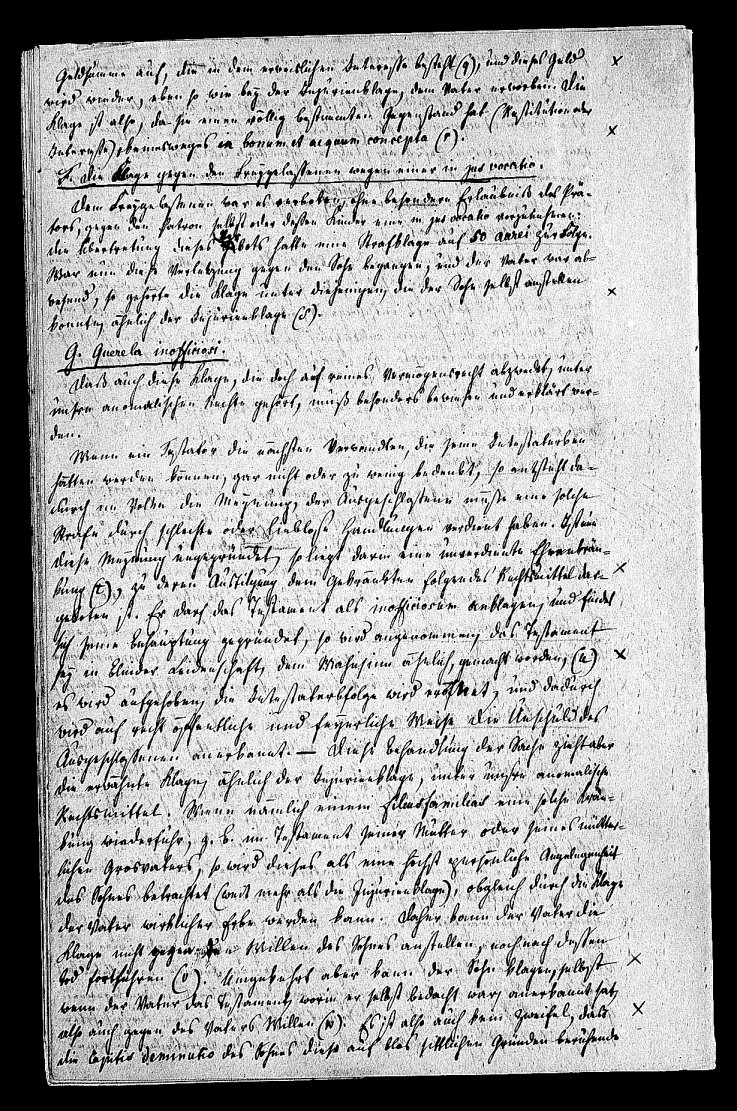 Geldsumme auf, die in dem erweislichen Interesse besteht (q), und dieses Geld
wird wieder, eben so wie bey der Injurienklage, dem Vater erworben. Die
Klage ist also, da sie einen völlig bestimmten Gegenstand hat (Restitution oder
Interesse), keineswegs in bonum et aequum concepta (r).
F. Die Klage gegen den Freygelassenen wegen einer in jus vocatio.
Dem Freygelassenen war es verboten, ohne besondere Erlaubniß des Prä-
tors, gegen den Patron selbst oder dessen Kinder eine in jus vocatio vorzunehmen:
die Übertretung dieses Verbots hatte eine Strafklage auf 50 aurei zur Folge.
War nun diese Verletzung gegen den Sohn begangen, und der Vater war ab-
wesend, so gehörte die Klage unter diejenigen, die der Sohn selbst anstellen
konnte, ähnlich der Injurienklage (s).
G. Querela inofficiosi.
Daß auch diese Klage, die doch auf reines Vermögensrecht abzweckt, unter
unsre anomalischen Rechte gehört, muß besonders bewiesen und erklärt wer-
den.
Wenn ein Testator die nächsten Verwandten, die seine Intestaterben
hätten werden können, gar nicht oder zu wenig bedenkt, so entsteht da-
durch im Volke die Meynung, der Ausgeschlossene müsse eine solche
Strafe durch schlechte oder lieblose Handlungen verdient haben. Ist nun
diese Meynung ungegründet, so liegt darin eine unverdiente Ehrenkrän-
kung (t), zu deren Austilgung dem Gekränkten folgendes Rechtsmittel dar-
geboten ist. Er darf das Testament als inofficiosum anklagen, und findet
sich seine Behauptung gegründet, so wird angenommen, das Testament
sey in blinder Leidenschaft, dem Wahnsinn ähnlich, gemacht worden, (u)
es wird aufgehoben, die Intestaterbfolge wird eröffnet, und dadurch
wird auf recht öffentliche und feyerliche Weise die Unschuld des
Ausgeschlossenen anerkannt. — Diese Behandlung der Sache zieht aber
die erwähnte Klage, ähnlich der Injurienklage, unter unsre anomalische
Rechtsmittel. Wenn nämlich einem filiusfamilias eine solche Krän-
kung wiederfuhr, z. B. im Testament seiner Mutter oder seines mütter-
lichen Grosvaters, so wird dieses als eine höchst persönliche Angelegenheit
des Sohnes betrachtet (weit mehr als die Injurienklage), obgleich durch die Klage
der Vater wirklicher Erbe werden kann. Daher kann der Vater die
Klage nicht gegen den Willen des Sohnes anstellen, noch nach dessen
Tod fortführen (v). Umgekehrt aber kann der Sohn klagen, selbst
wenn der Vater das Testament, worin er selbst bedacht war, anerkannt hat,
also auch gegen des Vaters Willen (w). Es ist also auch kein Zweifel, daß
die capitis deminutio des Sohnes diese auf blos sittlichen Gründen beruhende